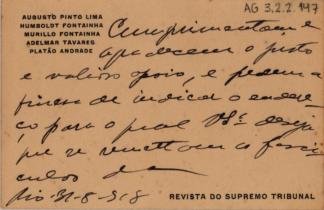 AG 3.2.2.147
AUGUSTO PINTO LIMA
HUMBOLDT FONTAINHA
MURILLO FONTAINHA
ADELMAR TAVARES
PLATÃO ANDRADE
Cumprimentam e
agradecem o justo
e valioso apoio, e pedem a
fineza de indicar o endere-
ço para o qual V.S.ª deseja
que se remettam os fasci-
culos da
Rio-31-8-918
REVISTA DO SUPREMO TRIBUNAL